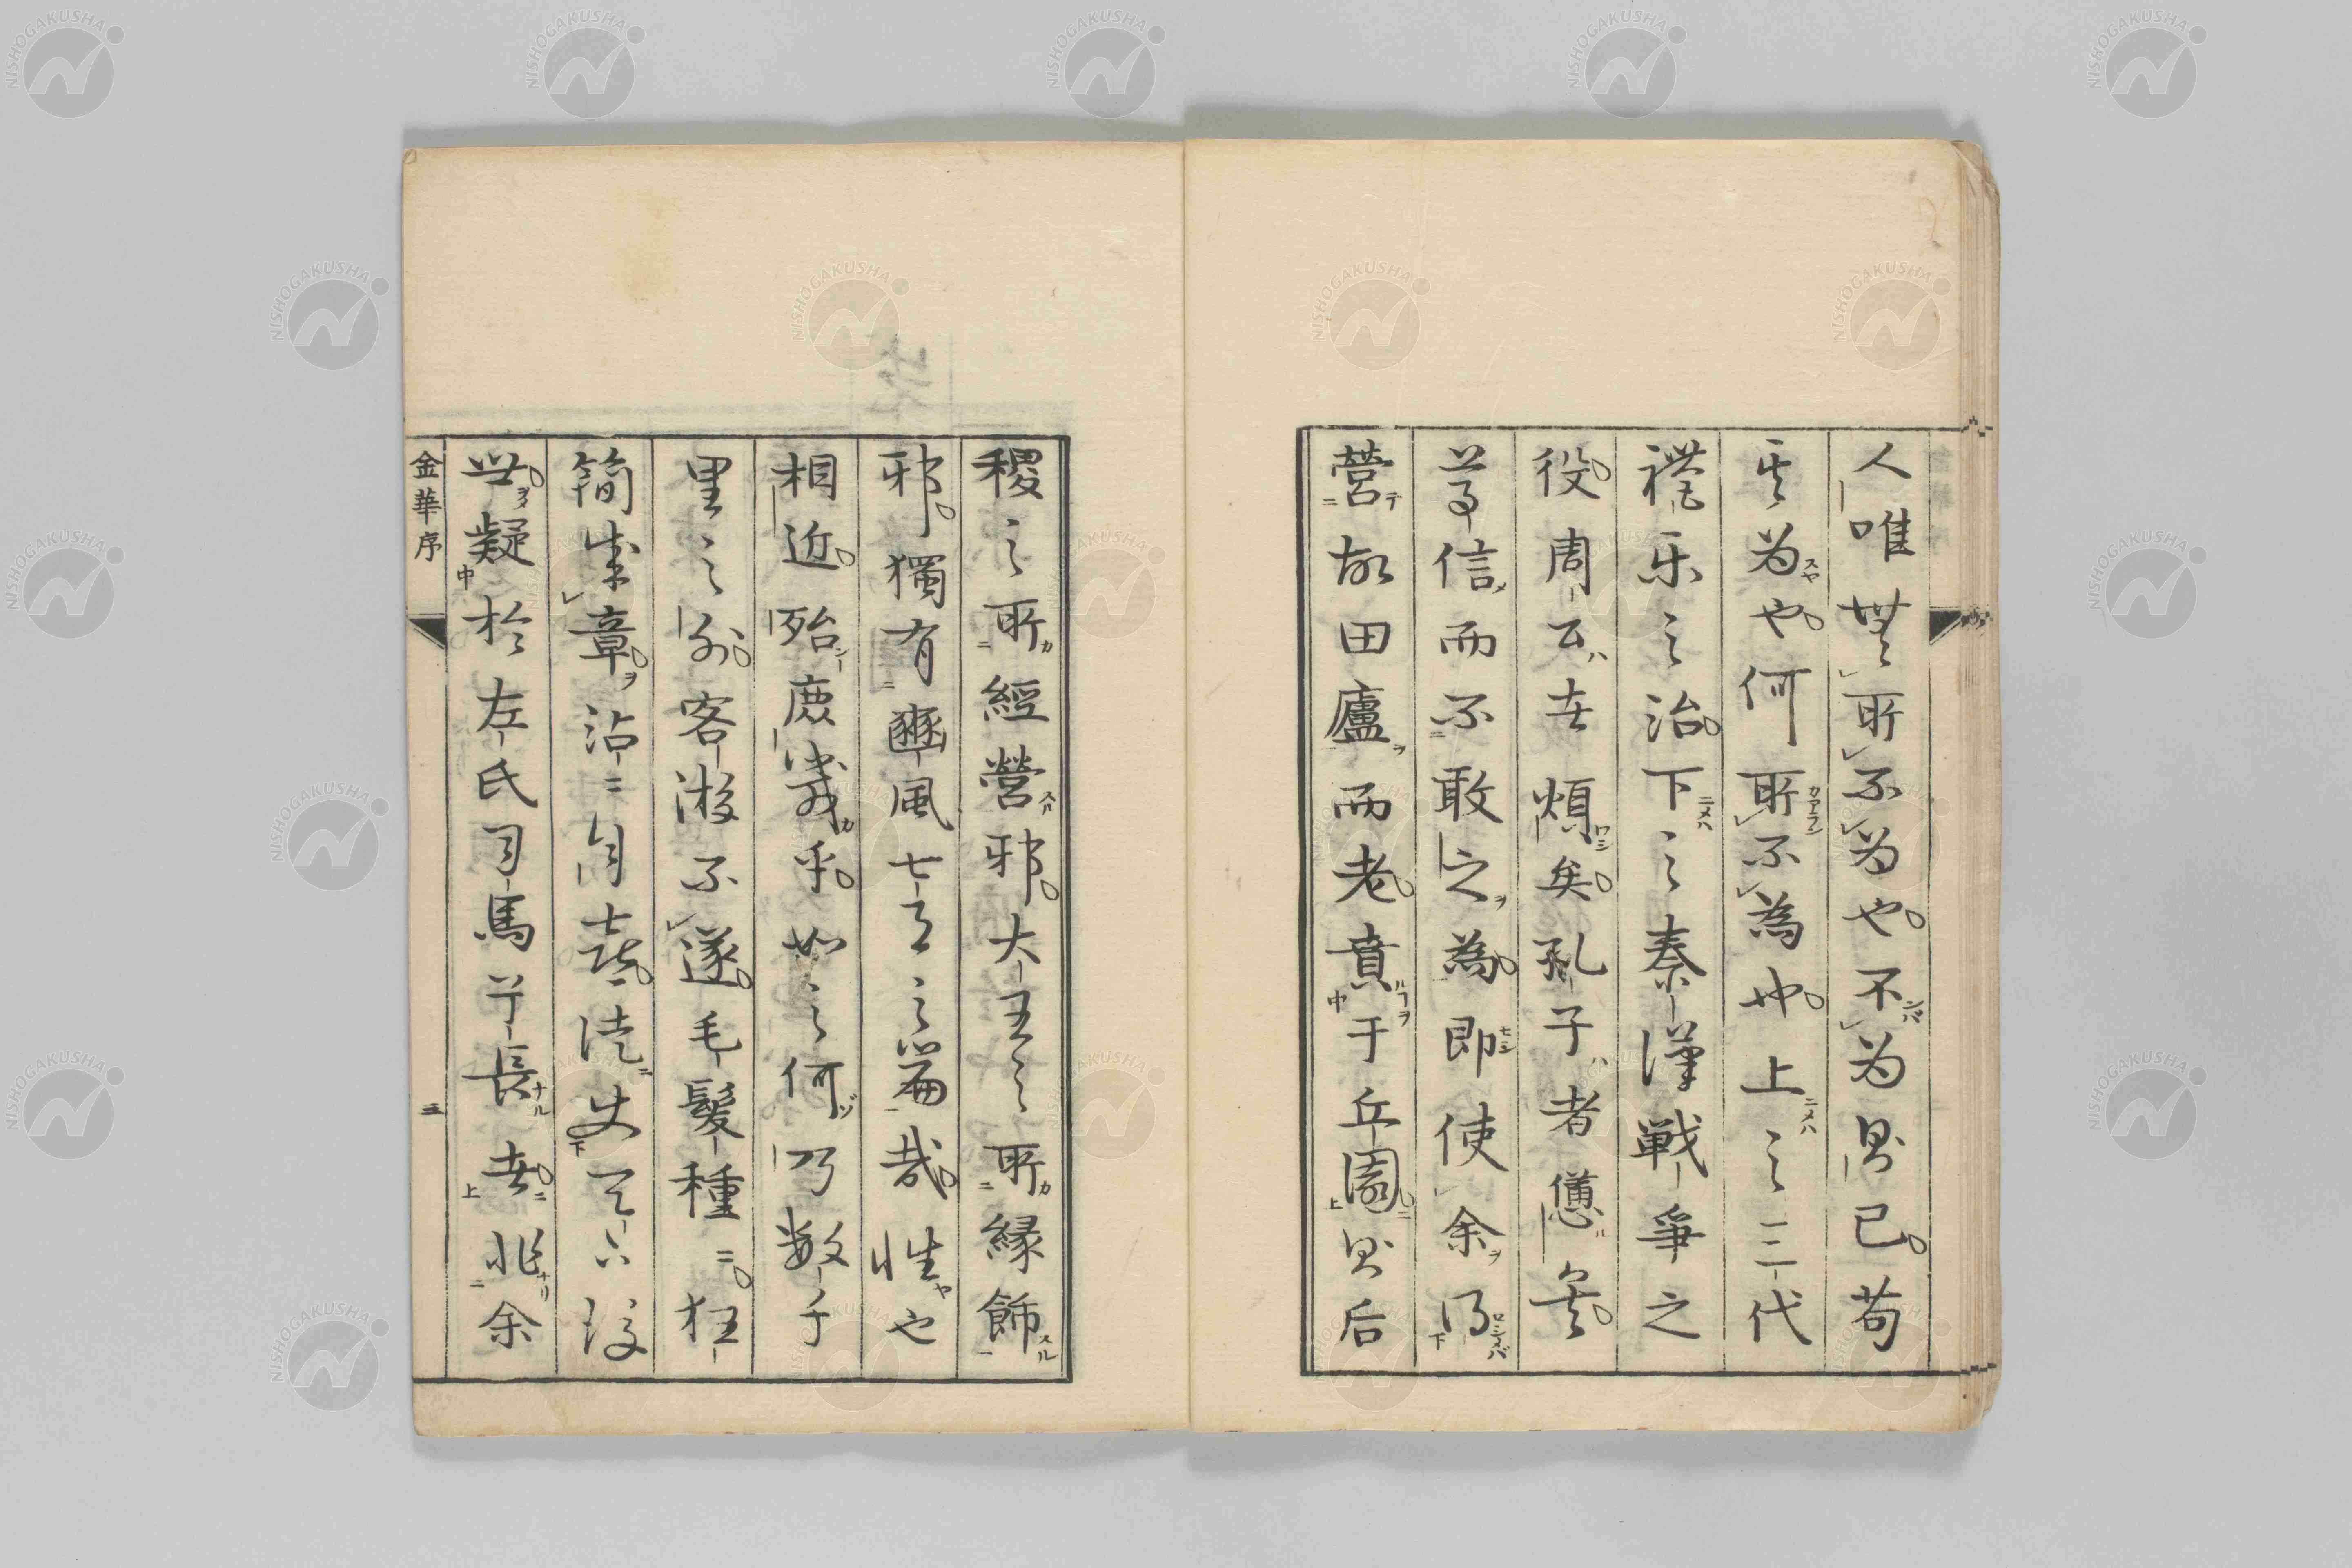 人唯無所不為也不為則已苟
其為也何所不為也上之三代
禮樂之治下之秦漢戰爭之
役周公者煩矣孔子者憊矣
尊信而不敢之為即使余得
營故田廬而老賁于丘園則后
稷之所經營邪大王之所緣飾
邪獨有豳風七月之篇哉性也
相近殆庶幾乎如之何乃數千
里之外客游不遂毛髮種〻狂
簡成章沾〻自喜徒使天下後
世疑於左氏司馬子長者非余
金華序 三